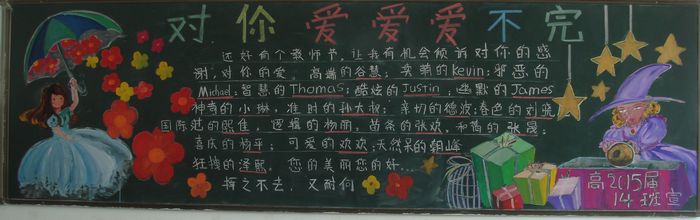 对你爱爱爱不完
还好有个教师节,让我有机会倾诉对你的感
谢,对你的爱。高端的谷慧;卖萌的Kevin;邪恶的
Michael;智慧的Thomas;酷炫的Justin;幽默的James
神奇的小琳,准时的孙大叔;亲切的德波;春色的刘晓
国际范的熙佳,逻辑的杨丽,苗条的张欢,和蔼的张晟;
喜庆的杨平;可爱的欢欢;天然呆的朝峰
狂拽的泽熙,您的美丽您的好...
挥之不去,又耐何
高2015届
14班宣